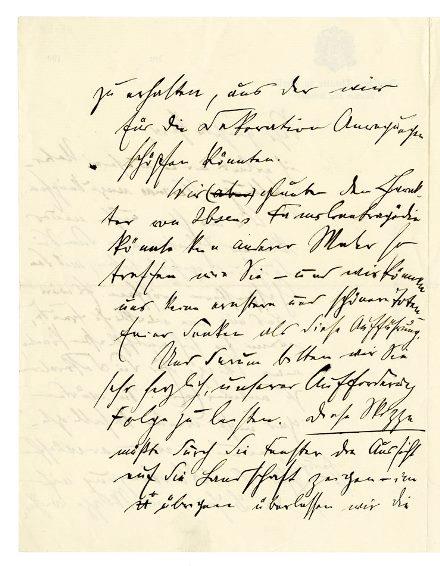 zu erhalten, aus der wir
für die Dekoration Anregungen
schöpfen könnten.
Wir glauben den Charak-
ter von Ibsens Familientragödie
könnte kein anderer Maler so
treffen wie Sie – und wir können
uns keine ernstere und schönere Toten
feier denken als diese Aufführung.
Und darum bitten wir Sie
sehr herzlich, unserer Aufforderung
Folge zu leisten. Diese Skizze
müßte durch die Fenster die Aussicht
auf die Landschaft zeigen – im
übrigen überlassen wir die